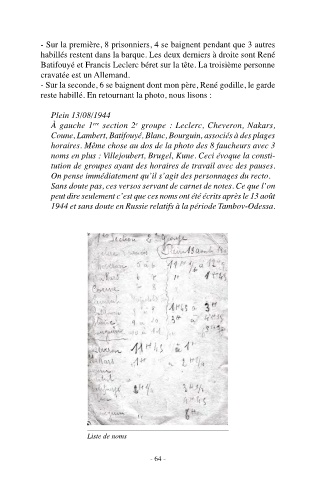 - Sur la première, 8 prisonniers, 4 se baignent pendant que 3 autres
habillés restent dans la barque. Les deux derniers à droite sont René
Batifouyé et Francis Leclerc béret sur la tête. La troisième personne
cravatée est un Allemand.
- Sur la seconde, 6 se baignent dont mon père, René godille, le garde
reste habillé. En retournant la photo, nous lisons :
Plein 13/08/1944
À gauche 1ère section 2e groupe : Leclerc, Cheveron, Nakars,
Coune, Lambert, Batifouyé, Blanc, Bourguin, associés à des plages
horaires. Même chose au dos de la photo des 8 faucheurs avec 3
noms en plus : Villejoubert, Brugel, Kune. Ceci évoque la consti-
tution de groupes ayant des horaires de travail avec des pauses.
On pense immédiatement qu'il s'agit des personnages du recto.
Sans doute pas, ces versos servant de carnet de notes. Ce que l'on
peut dire seulement c'est que ces noms ont été écrits après le 13 août
1944 et sans doute en Russie relatifs à la période Tambov-Odessa.
Section
Liste de noms
- 64 -